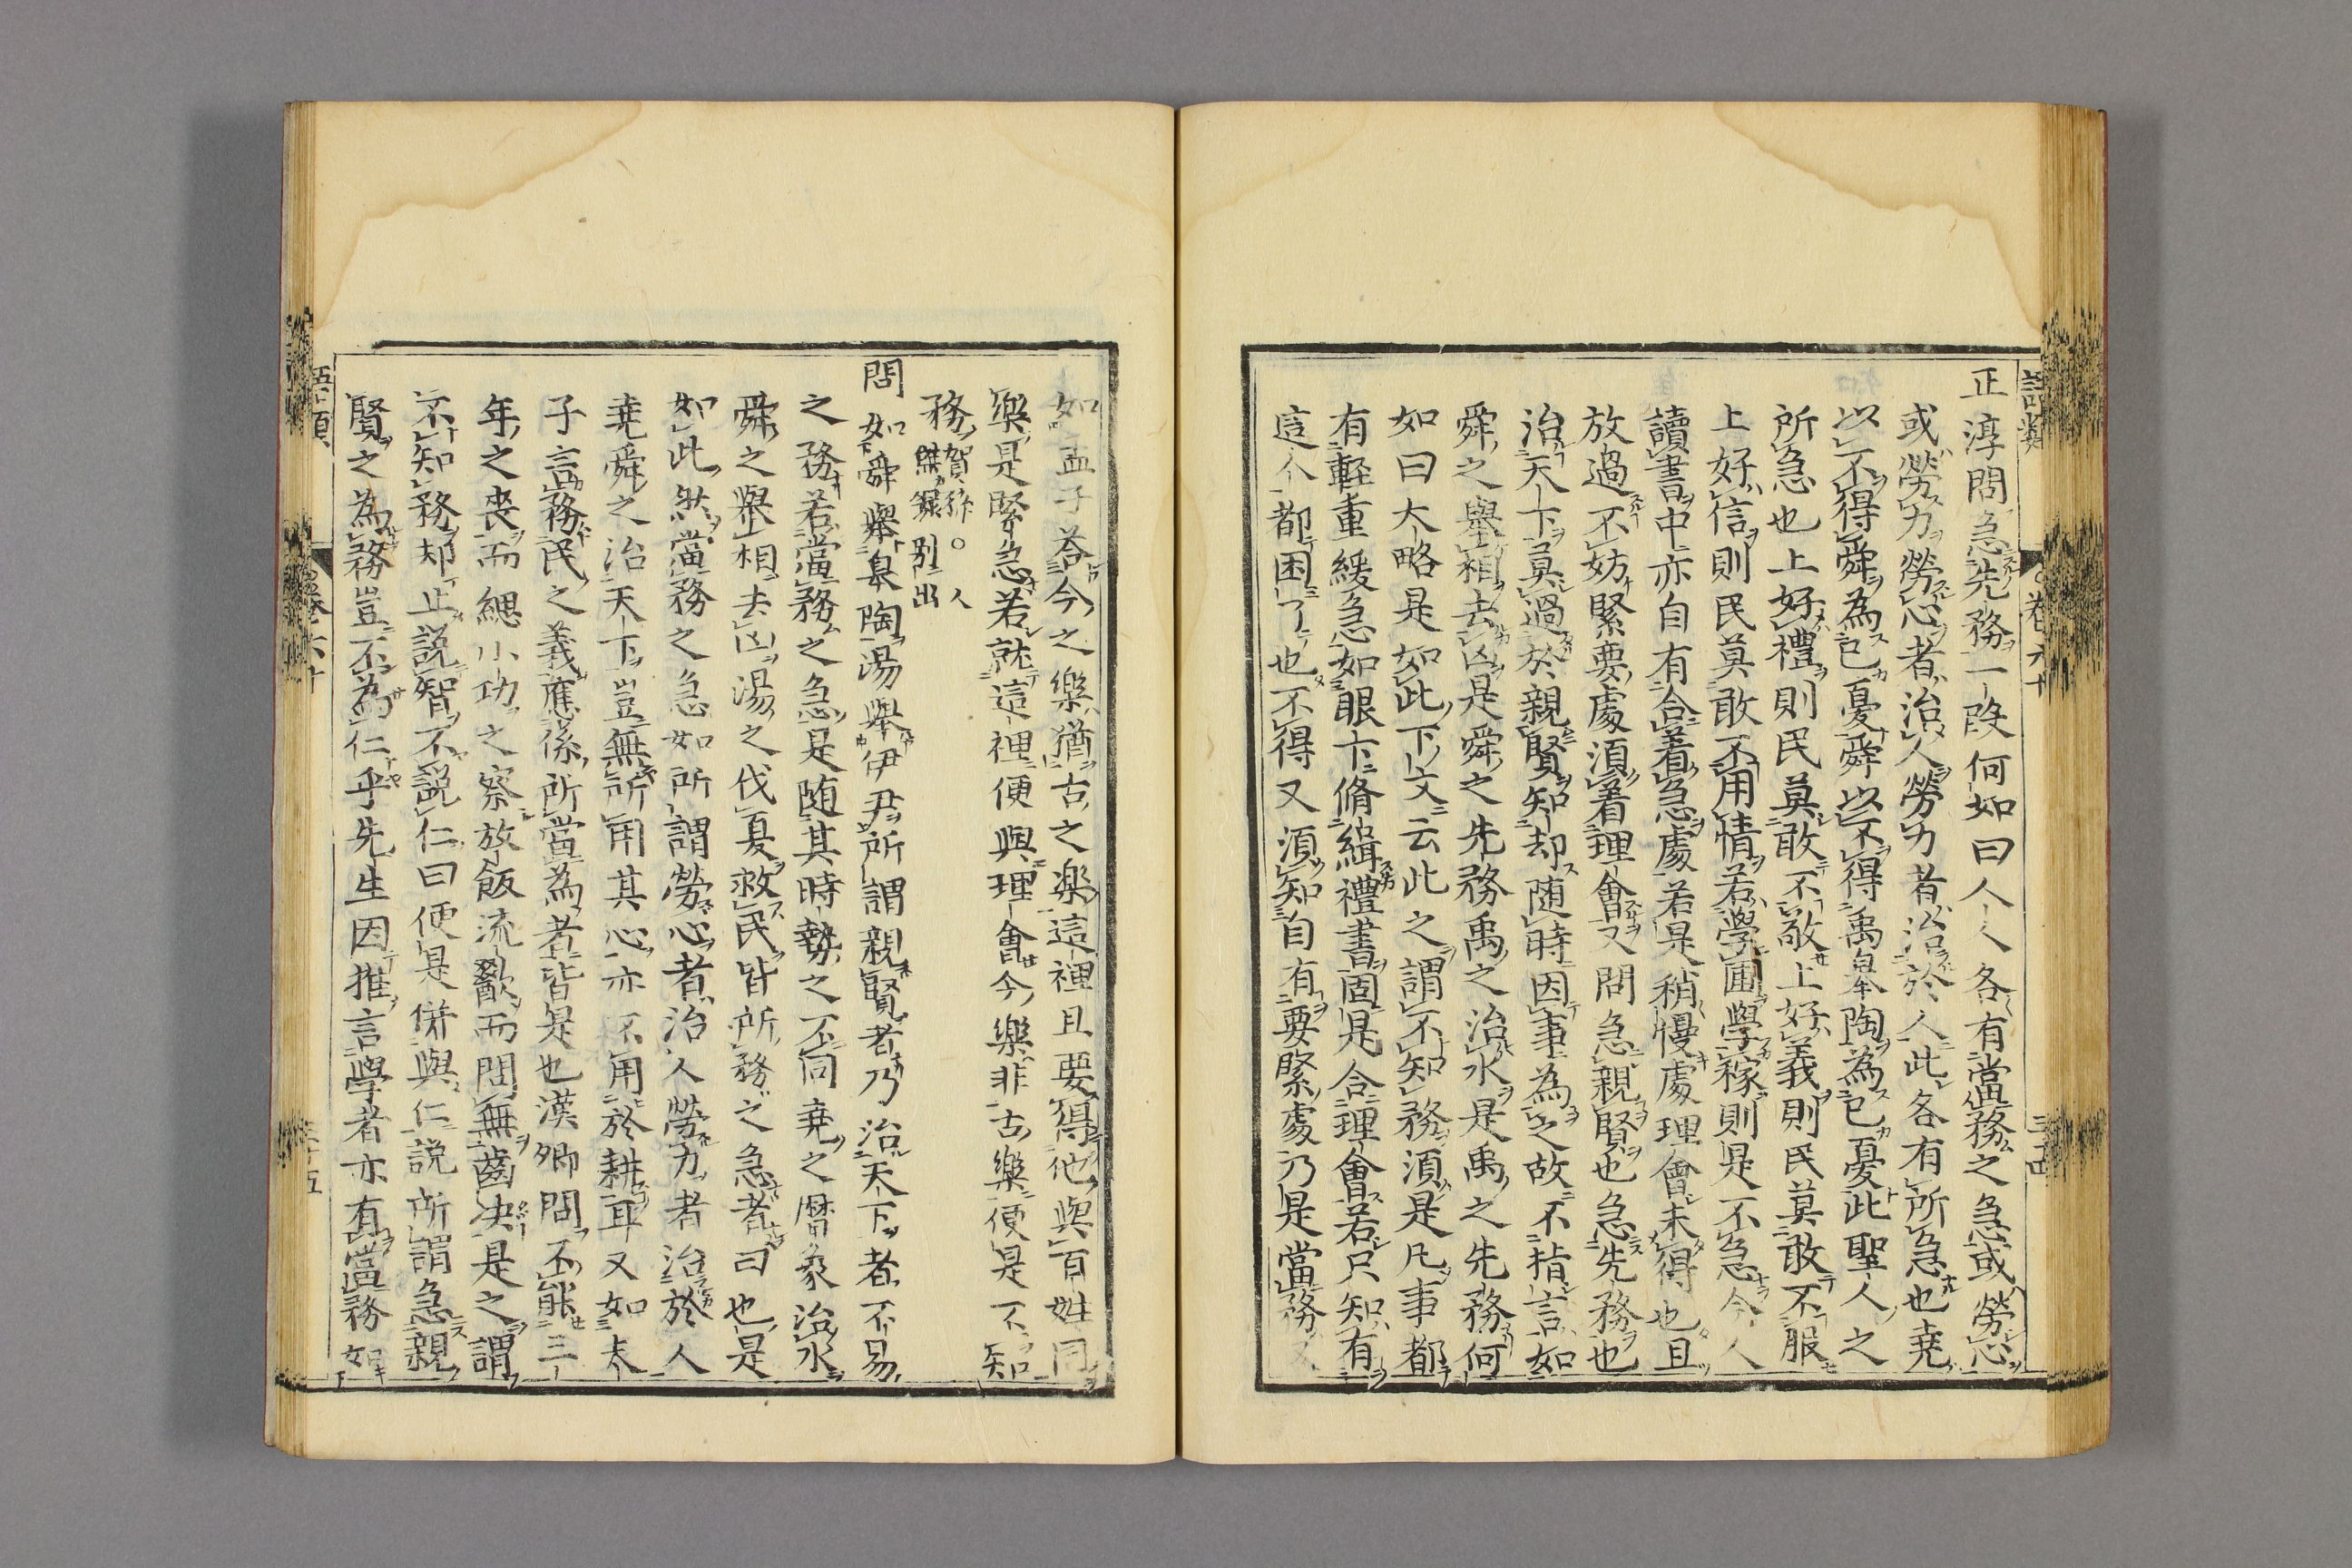 語類
卷六十
三十四
正淳問急先務一段何如曰人人各有當務之急或勞心
或勞力勞心者治人勞力者治於人此各有所急也堯
以不得舜為己憂舜以不得禹皋陶為己憂此聖人之
所急也上好禮則民莫敢不敬上好義則民莫敢不服
上好信則民莫敢不用情若學圃學稼則是不急今人
讀書中亦自有合著急處若是稍慢處理會未得也且
放過不妨緊要處須著理會又問急親賢也急先務也
治天下莫過於親賢知却随時因事為之故不指言如
舜之舉相去凶是舜之先務禹之治水是禹之先務何
如曰大略是如此下文云此之謂不知務須是凡事都
有輕重緩急如眼下脩緝禮書固是合理會若只知有
這个都困了也不得又須知自有要緊處乃是當務又
如孟子荅今之樂猶古之樂這裡且要得他與百姓同
樂是緊急若就這裡便與理會今樂非古樂便是不知
務賀孫○人傑錄別出
問如舜舉皐陶湯舉伊尹所謂親賢者乃治天下者不易
之務若當務之急是随其時勢之不同堯之曆象治水
舜之舉相去凶湯之伐夏救民皆所務之急者曰也是
如此然當務之急如所謂勞心者治人勞力者治於人
堯舜之治天下豈無所用其心亦不用於耕耳又如夫
子言務民之義應係所當為者皆是也漢卿問不能三
年之喪而緦小功之察放飯流歠而問無齒决是之謂
不知務却止説智不説仁曰便是併與仁説所謂急親
賢之為務豈不為仁乎先生因推言學者亦有當務如
語類
卷六十
三十五